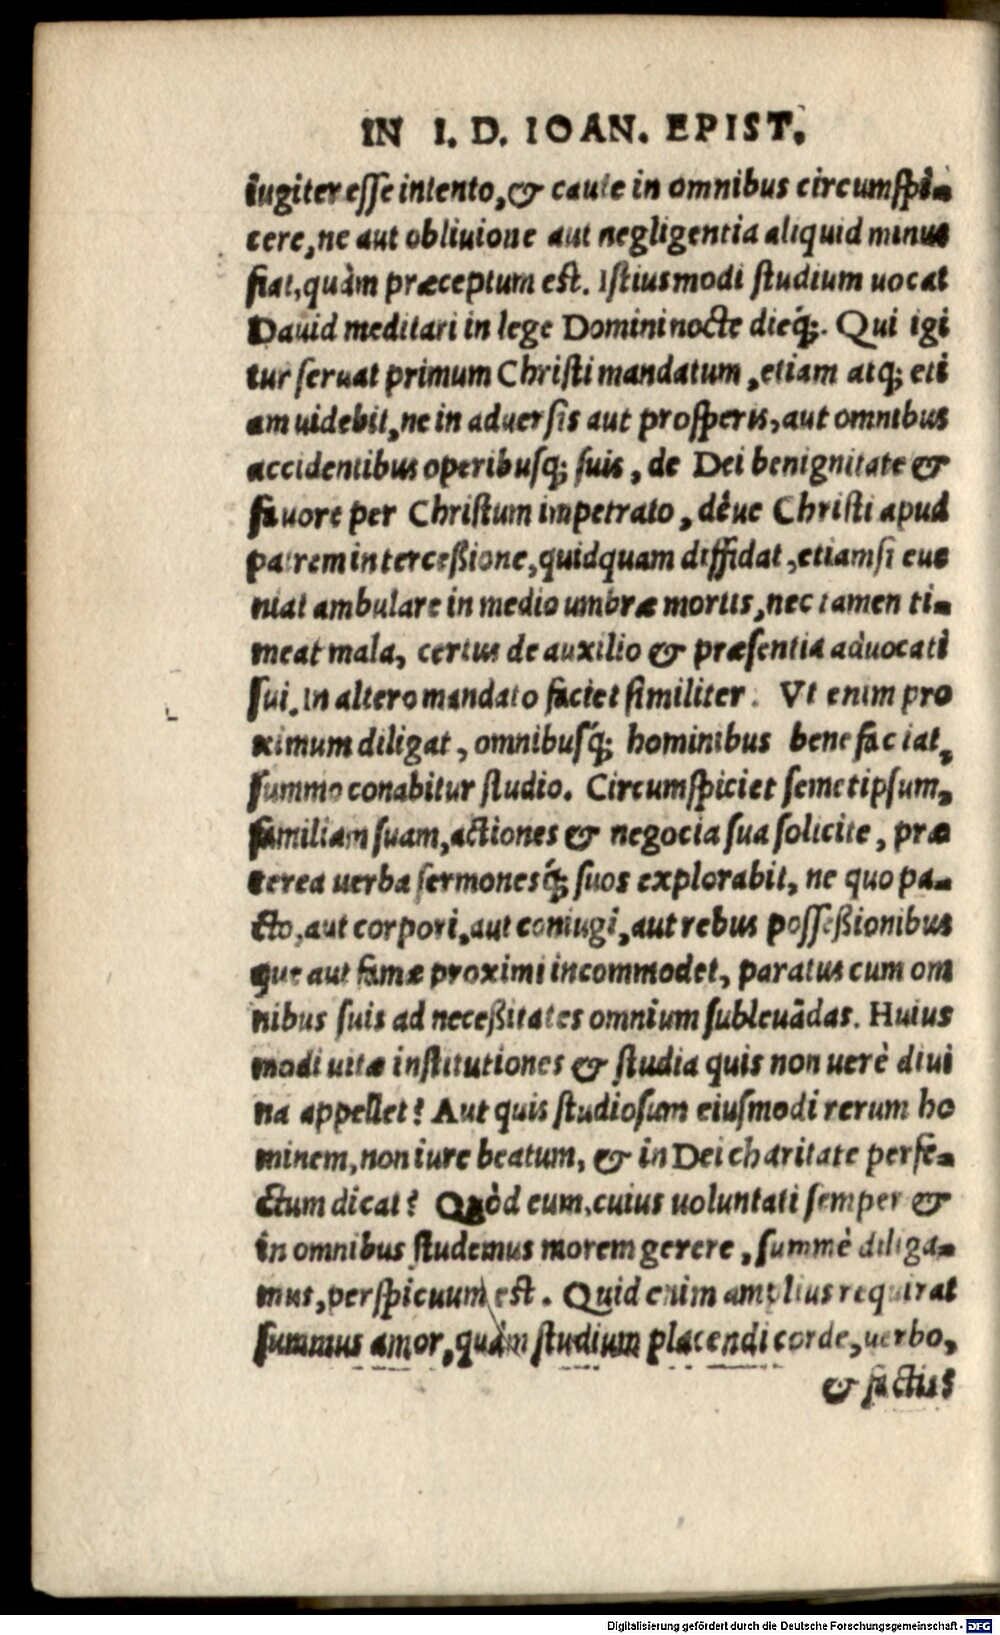 IN I. D. IOAN. EPIST.
iugiter esse intento, & caute in omnibus circumspi-
cere, ne aut obliuione aut negligentia aliquid minus
fiat, quàm præceptum est. Istiusmodi studium uocat
Dauid meditari in lege Domini nocte dieq́;. Qui igi
tur seruat primum Christi mandatum, etiam atq; eti
am uidebit, ne in aduersis aut prosperis, aut omnibus
accidentibus operibusq; suis, de Dei benignitate &
fauore per Christum impetrato, déue Christi apud
patrem intercessione, quidquam diffidat, etiamsi eue
niat ambulare in medio umbræ mortis, nec tamen ti-
meat mala, certus de auxilio & præsentia aduocati
sui. In altero mandato faciet similiter. Vt enim pro
ximum diligat, omnibusq́; hominibus bene faciat,
summo conabitur studio. Circumspiciet semetipsum,
familiam suam, actiones & negocia sua solicite, præ
terea uerba sermonesq́; suos explorabit, ne quo pa-
cto, aut corpori, aut coniugi, aut rebus possessionibus
que aut famæ proximi incommodet, paratus cum om
nibus suis ad necessitates omnium subleuãdas. Huius
modi uitæ institutiones & studia quis non uerè diui
na appellet? Aut quis studiosum eiusmodi rerum ho
minem, non iure beatum, & in Dei charitate perfe-
ctum dicat? Quòd eum, cuius uoluntati semper &
in omnibus studemus morem gerere, summè diliga-
mus, perspicuum est. Quid enim amplius requirat
summus amor, quàm studium placendi corde, uerbo,
& factis
Digitalisierung gefördert durch die Deutsche Forschungsgemeinschaft - DFG